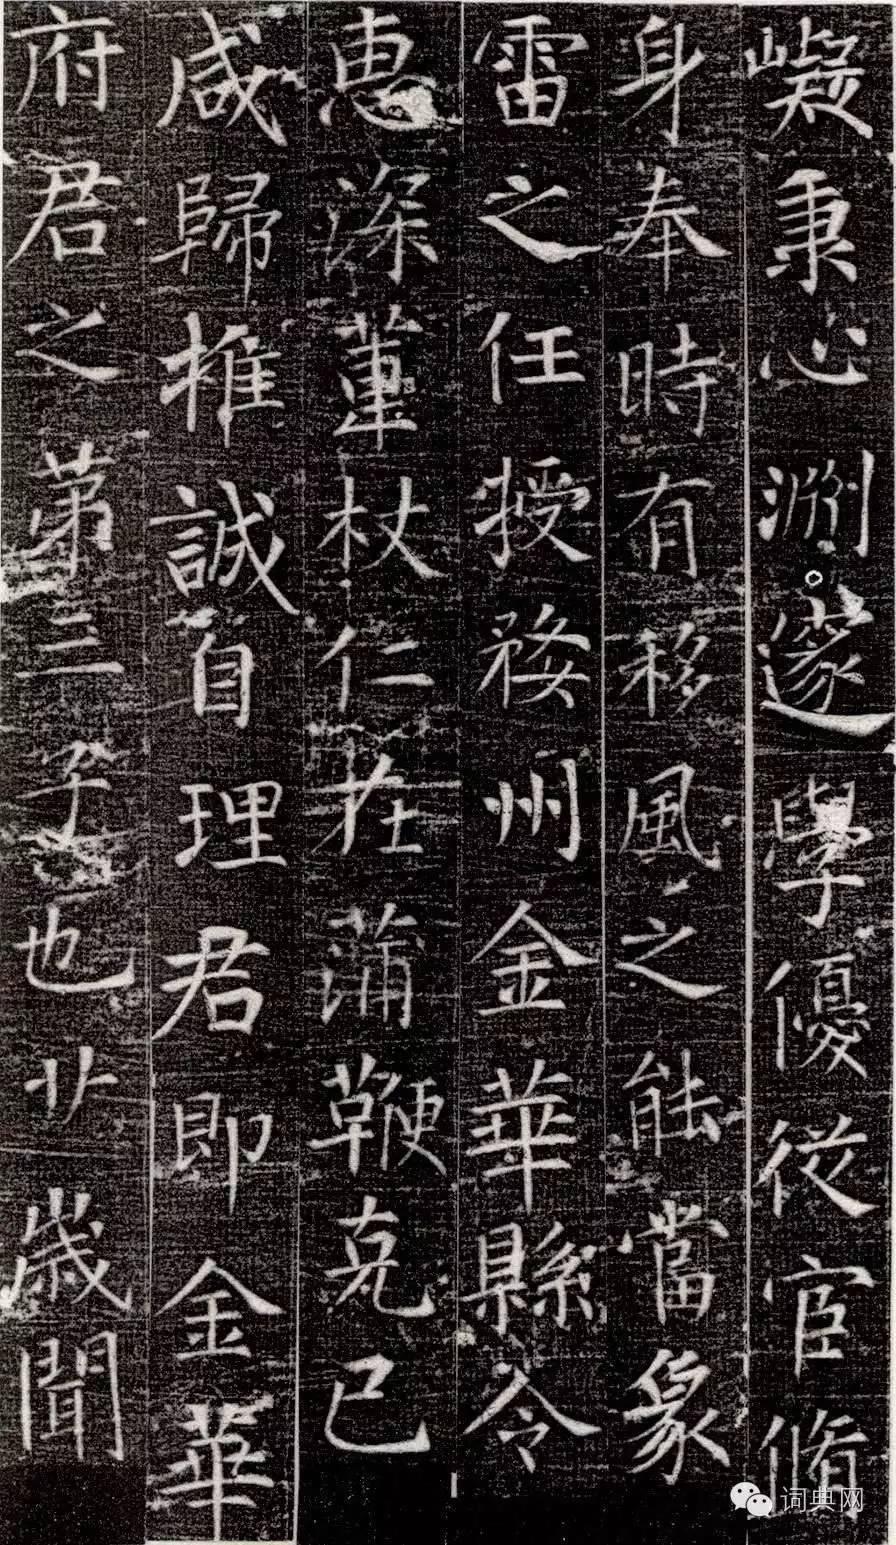 嶷秉心淵邃學優從宦脩
身奉時有移風之能當象
雷之任授婺州金華縣令
惠深董杖仁在蒲鞭克己
咸歸推誠自理君即金華
府君之第三子也廿歲聞
词典网